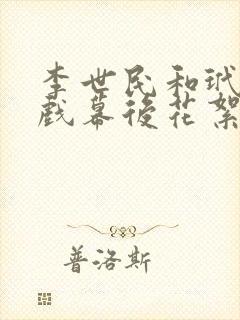 李世民和玳
戲幕後花絮
普洛斯